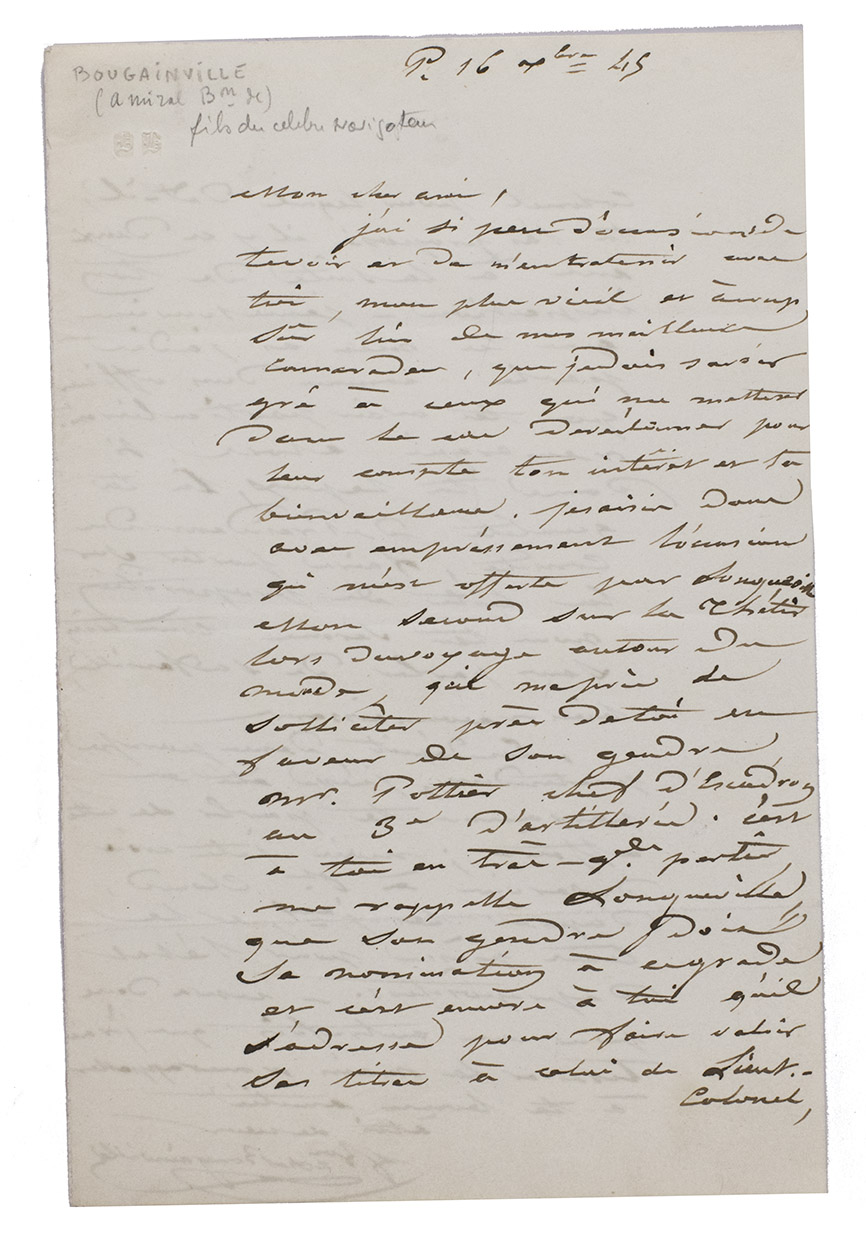 BOUGAINVILLE
(amiral Bon de)
fils du celebre navigateur
P. 16 xbre 45
Mon cher ami,
j'ai si peu d'occasions de
te voir et de m'entretenir avec
toi, mon plus vieil et à coup
sûr l'un de mes meilleurs
camarades, que je dois savoir
gré à ceux qui me mettent
dans le cas de réclamer pour
leur compte ton intérêt et ta
bienveillance. je saisis donc
avec empressement l'occasion
qui m'est offerte par Longueville
Mon second sur la Thétis
lors du voyage autour du
monde, qui me prie de
solliciter près de toi en
faveur de son gendre
mr. Pottier chef d'Escadron
au 3e d'artillerie. c'est
à toi en très-gde partie,
me rappelle Longueville,
que son gendre doit
sa nomination à ce grade
et c'est encore à toi qu'il
s'adresse pour faire valoir
ses titres à celui de Lieut.-
Colonel,